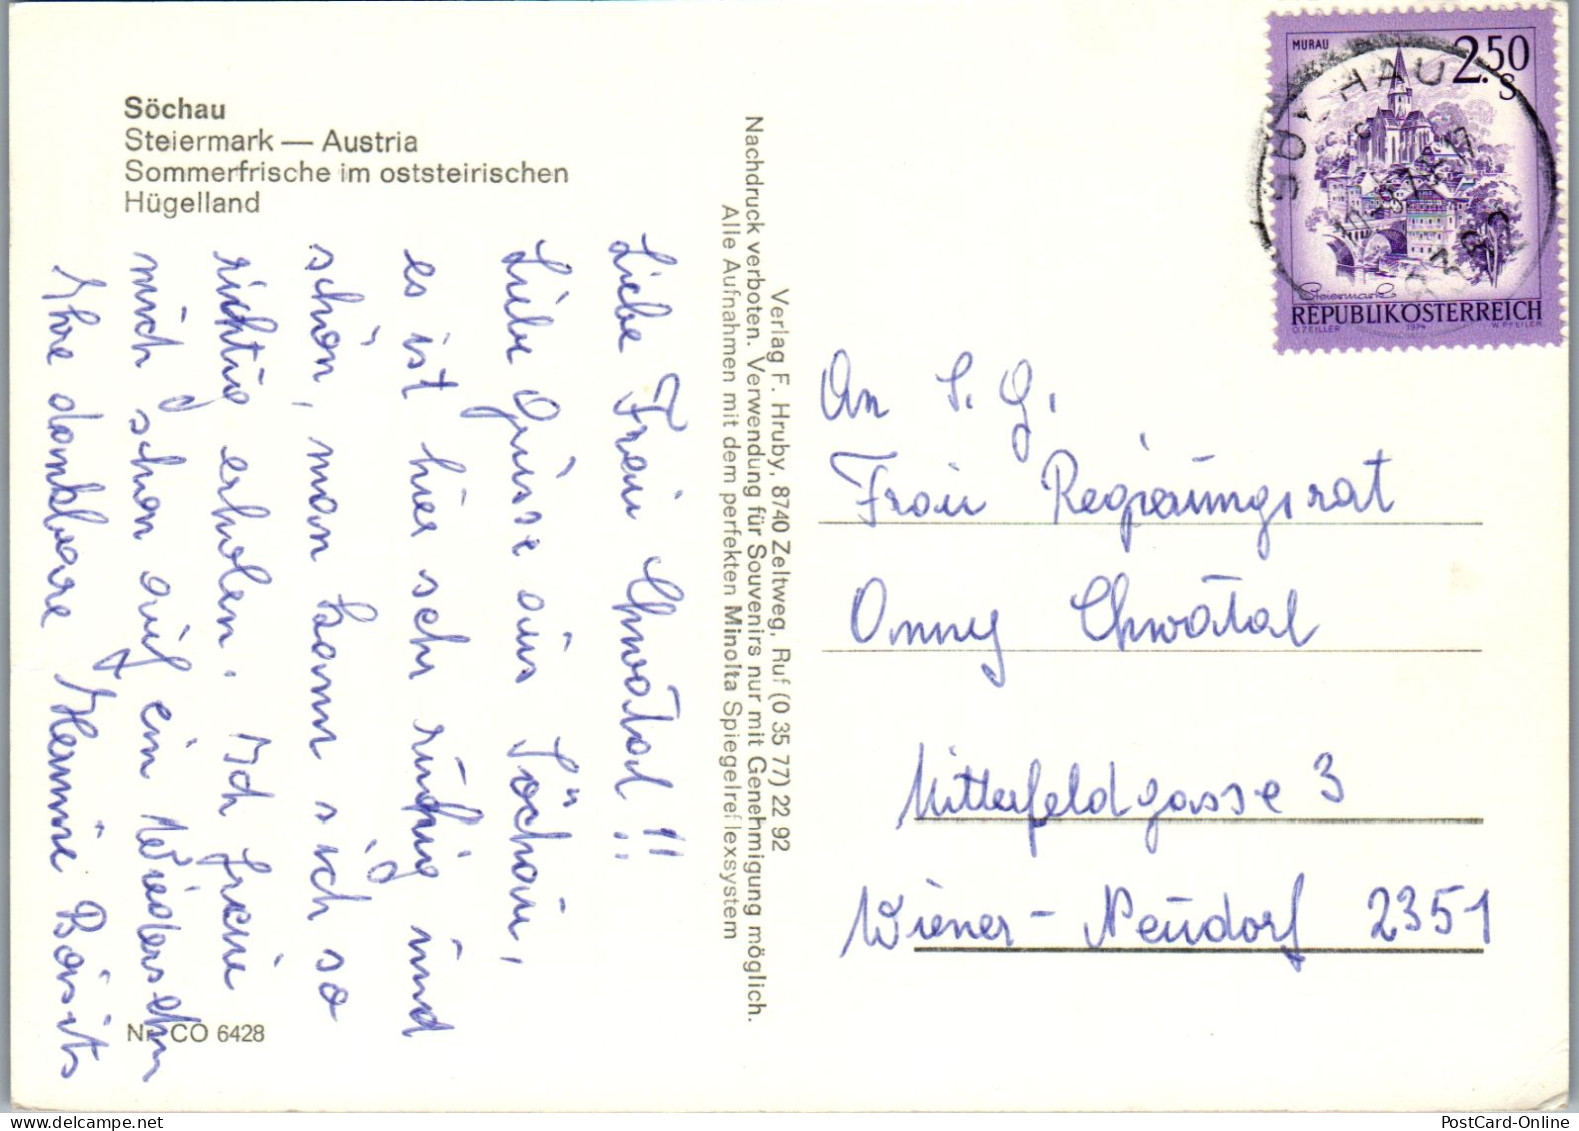 Söchau
Steiermark — Austria
Sommerfrische im oststeirischen
Hügelland
Liebe Frau Chwatal!!
Liebe Grüsse aus Söchau,
es ist hier sehr ruhig und
schön, man kann sich so
richtig erholen. Ich freue
mich schon auf ein Wiedersehn
Ihre dankbare Hermine
Nr. CO 6428
Verlag F. Hruby, 8740 Zeltweg, Ruf (0 35 77) 22 92
Nachdruck verboten. Verwendung für Souvenirs nur mit Genehmigung möglich.
Alle Aufnahmen mit dem perfekten Minolta Spiegelreflexsystem
MURAU
2.50
S
Steiermark
REPUBLIK ÖSTERREICH
O. ZEILLER 1974 W. PFEILER
SÖCHAU
An S. G.
Frau Regierungsrat
Anny Chwatal
Mitterfeldgasse 3
Wiener-Neudorf 2351
PostCard-Online